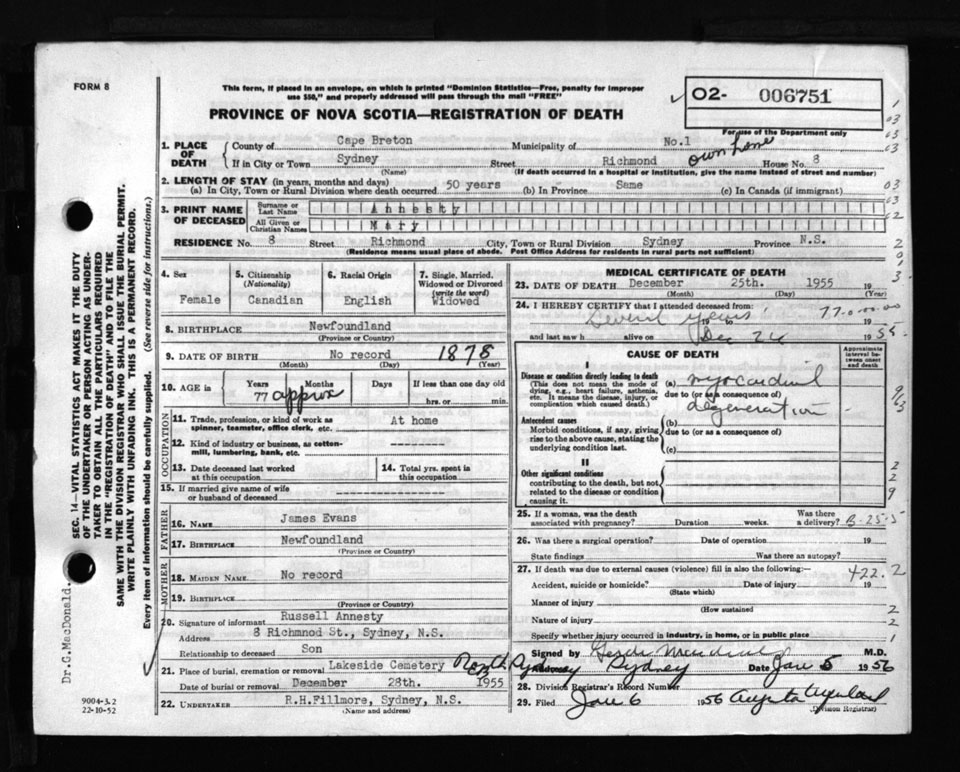 FORM 8
This form, if placed in an envelope, on which is printed "Dominion Statistics—Free, penalty for improper
use $50," and properly addressed will pass through the mail "FREE"
PROVINCE OF NOVA SCOTIA—REGISTRATION OF DEATH
O2- 006751
For use of the Department only
1. PLACE OF DEATH County of Cape Breton Municipality of No.1
If in City or Town Sydney Street Richmond House No. 8 own home
(Name) (If death occurred in a hospital or institution, give the name instead of street and number)
2. LENGTH OF STAY (in years, months and days)
(a) In City, Town or Rural Division where death occurred 50 years (b) In Province Same (c) In Canada (if immigrant)
3. PRINT NAME OF DECEASED Surname or Last Name Annesty
All Given or Christian Names Mary
RESIDENCE No. 8 Street Richmond City, Town or Rural Division Sydney Province N.S.
(Residence means usual place of abode. Post Office Address for residents in rural parts not sufficient)
4. Sex Female
5. Citizenship (Nationality) Canadian
6. Racial Origin English
7. Single, Married, Widowed or Divorced (write the word) Widowed
8. BIRTHPLACE Newfoundland
(Province or Country)
9. DATE OF BIRTH No record 1878
(Month) (Day) (Year)
10. AGE in Years Months Days If less than one day old
77 approx hrs. or min.
OCCUPATION
11. Trade, profession, or kind of work as spinner, teamster, office clerk, etc. At home
12. Kind of industry or business, as cotton-mill, lumbering, bank, etc. ------------
13. Date deceased last worked at this occupation
14. Total yrs. spent in this occupation
15. If married give name of wife or husband of deceased ------------
FATHER
16. NAME James Evans
17. BIRTHPLACE Newfoundland
(Province or Country)
MOTHER
18. MAIDEN NAME No record
19. BIRTHPLACE
(Province or Country)
20. Signature of informant Russell Annesty
Address 8 Richmnod St., Sydney, N.S.
Relationship to deceased Son
21. Place of burial, cremation or removal Lakeside Cemetery North Sydney
Date of burial or removal December 28th. 1955
22. UNDERTAKER R.H.Fillmore, Sydney, N.S.
(Name and address)
MEDICAL CERTIFICATE OF DEATH
23. DATE OF DEATH December 25th. 1955 19
(Month) (Day) (Year)
24. I HEREBY CERTIFY that I attended deceased from:
Several years 19 to 19 77-0-00-00
and last saw h alive on Dec 24 1955
CAUSE OF DEATH
Approximate interval between onset and death
I
Disease or condition directly leading to death
(This does not mean the mode of dying, e.g., heart failure, asthenia, etc. It means the disease, injury, or complication which caused death.)
(a) myocardial
due to (or as a consequence of)
degeneration
Antecedent causes
Morbid conditions, if any, giving rise to the above cause, stating the underlying condition last.
(b)
due to (or as a consequence of)
(c)
II
Other significant conditions contributing to the death, but not related to the disease or condition causing it.
25. If a woman, was the death associated with pregnancy? Duration weeks. Was there a delivery? B-25-5
26. Was there a surgical operation? Date of operation 19
State findings Was there an autopsy?
27. If death was due to external causes (violence) fill in also the following: 422.2
Accident, suicide or homicide? Date of injury 19
(State which)
Manner of injury
(How sustained)
Nature of injury
Specify whether injury occurred in industry, in home, or in public place
Signed by M.D.
Address Sydney Date Jan 5 1956
28. Division Registrar's Record Number
29. Filed Jan 6 1956
(Division Registrar)
SEC. 14—VITAL STATISTICS ACT MAKES IT THE DUTY
OF THE UNDERTAKER OR PERSON ACTING AS UNDER-
TAKER TO OBTAIN ALL THE PARTICULARS REQUIRED
IN THE "REGISTRATION OF DEATH" AND TO FILE THE
SAME WITH THE DIVISION REGISTRAR WHO SHALL ISSUE THE BURIAL PERMIT.
WRITE PLAINLY WITH UNFADING INK. THIS IS A PERMANENT RECORD.
Every item of information should be carefully supplied. (See reverse side for instructions.)
Dr.G.MacDonald.
9004-3.2
22-10-52